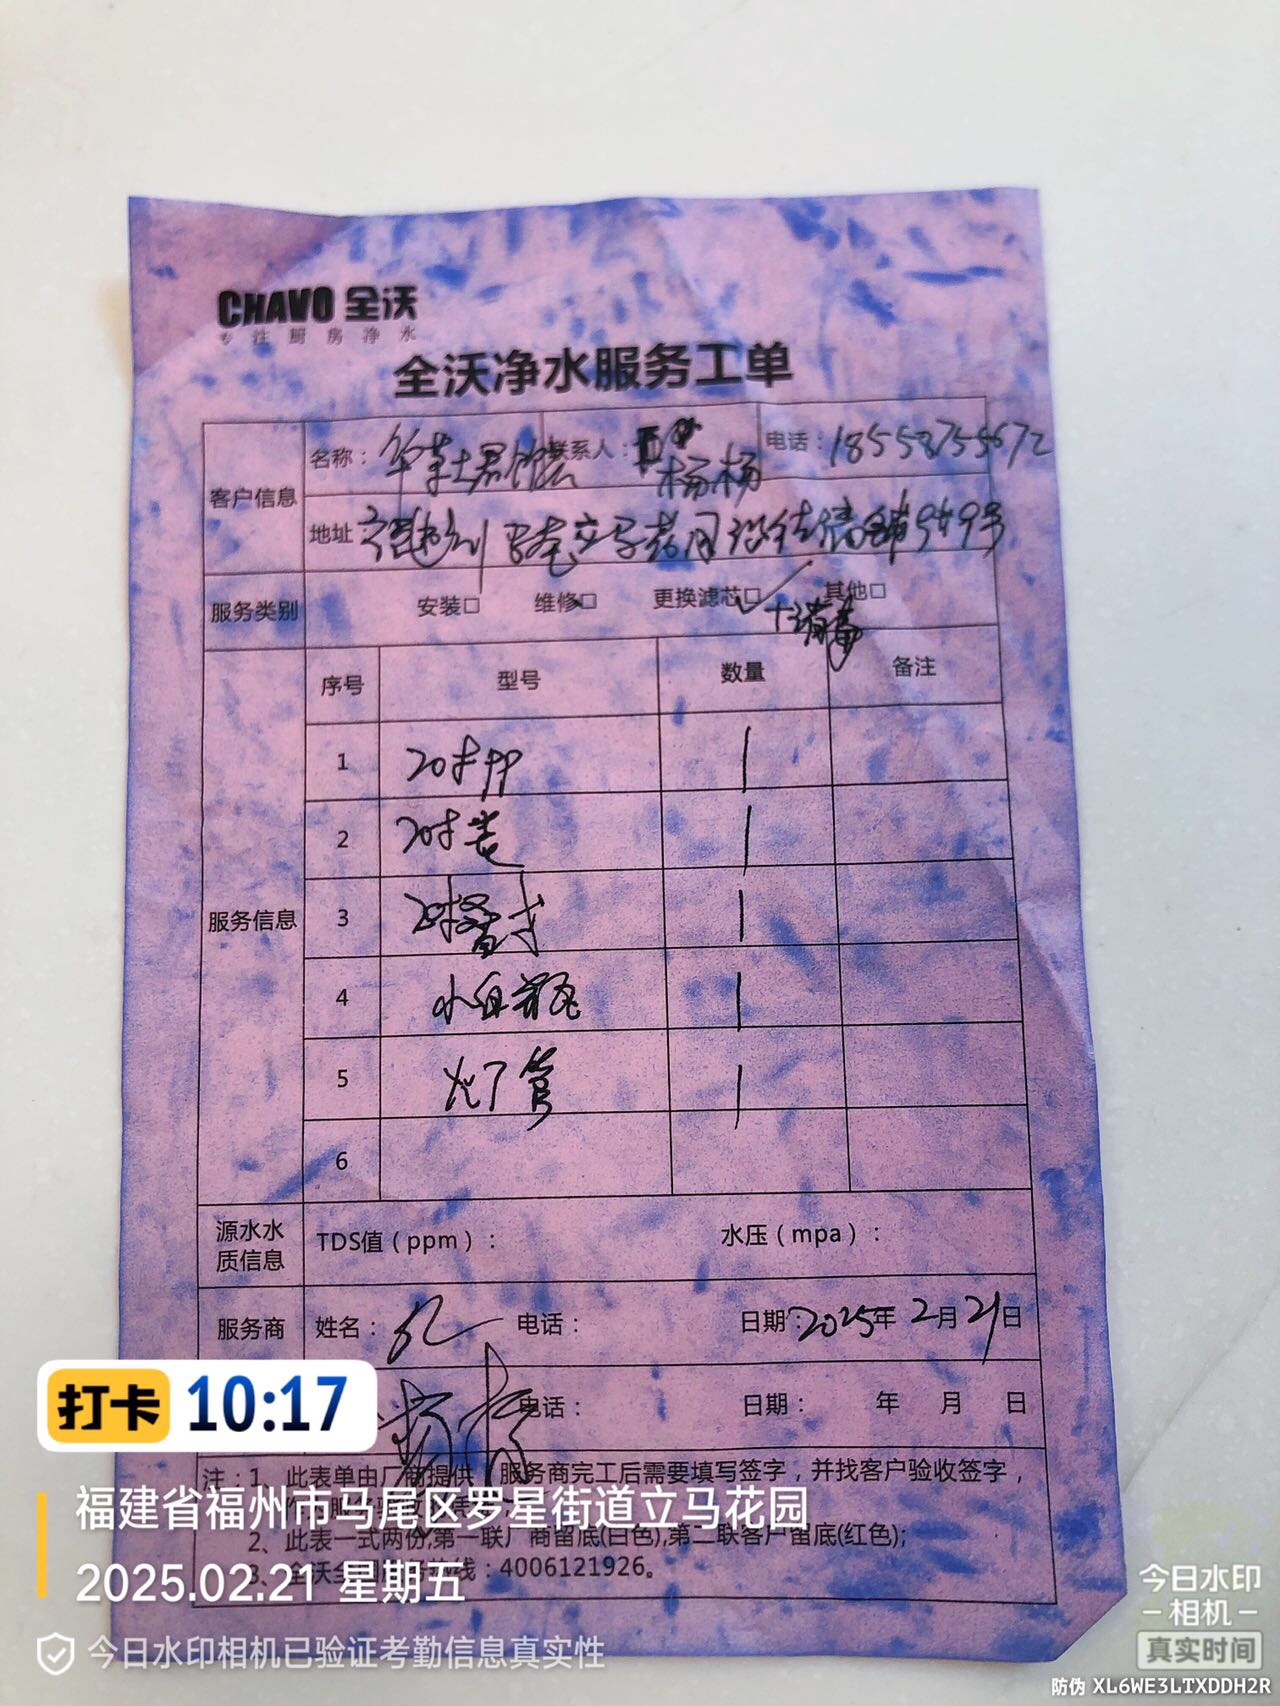 CHAVO 全沃
专注厨房净水
全沃净水服务工单
客户信息
名称：
联系人：杨杨
电话：18558755672
地址
服务类别
安装□ 维修□ 更换滤芯□✓ 其他□
+消毒
服务信息
序号 型号 数量 备注
1 20寸PP 1
2 20寸 1
3 1
4 小白瓶 1
5 灯管 1
6
源水水质信息
TDS值（ppm）： 水压（mpa）：
服务商 姓名： 电话： 日期：2025年2月21日
电话： 日期： 年 月 日
注：1、此表单由厂商提供，服务商完工后需要填写签字，并找客户验收签字，
2、此表一式两份,第一联厂商留底(白色),第二联客户留底(红色);
3、全沃全国服务热线：4006121926。
打卡 10:17
福建省福州市马尾区罗星街道立马花园
2025.02.21 星期五
今日水印相机已验证考勤信息真实性
今日水印
相机
真实时间
防伪 XL6WE3LTXDDH2R